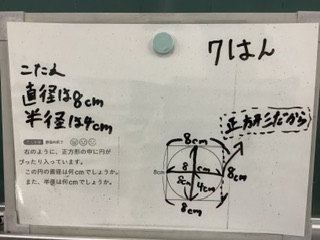 7はん
こたえ
直径は8cm
半径は4cm
右のように、正方形の中に円が
ぴったり入っています。
この円の直径は何cmでしょうか。
また、半径は何cmでしょうか。
正方形だから
8cm
8cm
8
cm
8cm
4cm
8cm
8cm